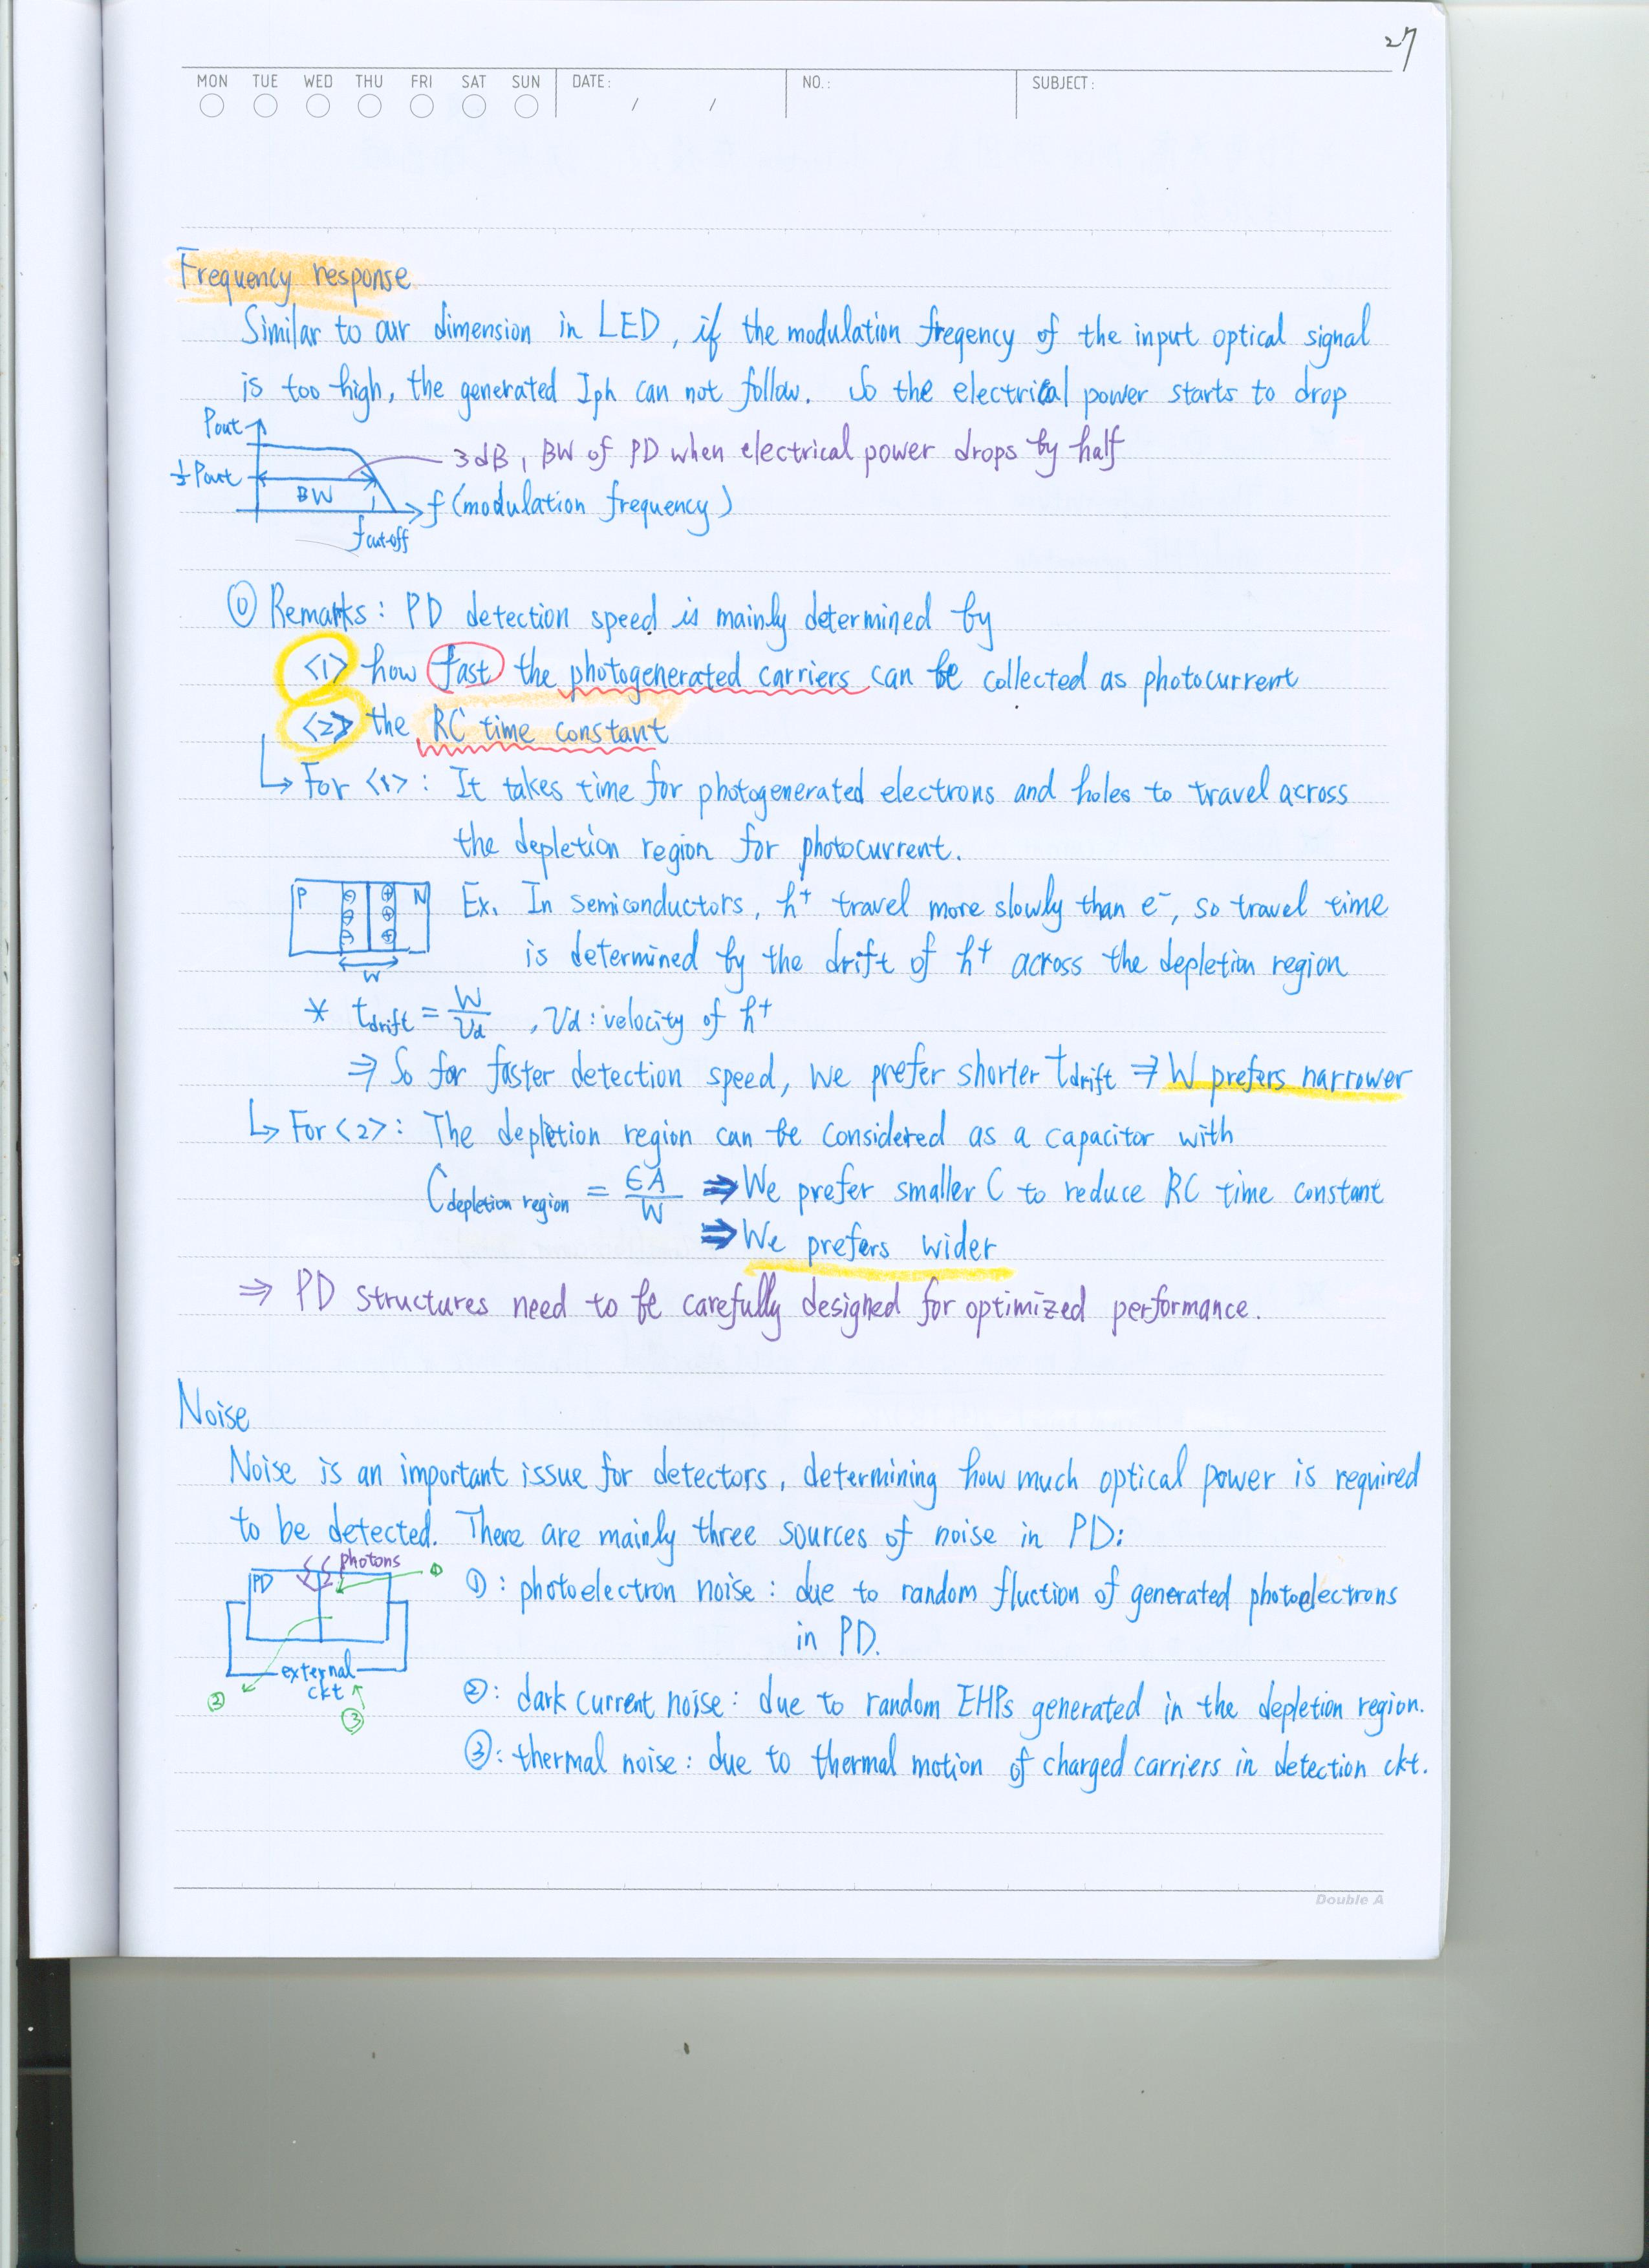 27
MON TUE WED THU FRI SAT SUN DATE: / / NO.: SUBJECT:
Frequency response
Similar to our dimension in LED, if the modulation freqency of the input optical signal
is too high, the generated Iph can not follow. So the electrical power starts to drop
Pout
3dB, BW of PD when electrical power drops by half
½ Pout
BW
f (modulation frequency)
fcut-off
① Remarks: PD detection speed is mainly determined by
<1> how fast the photogenerated carriers can be collected as photocurrent
<2> the RC time constant
↳ For <1>: It takes time for photogenerated electrons and holes to travel across
the depletion region for photocurrent.
P ⊖ ⊕ N
⊖ ⊕
⊖ ⊕
W
Ex. In semiconductors, h⁺ travel more slowly than e⁻, so travel time
is determined by the drift of h⁺ across the depletion region
* tdrift = W/Vd , Vd: velocity of h⁺
⇒ So for faster detection speed, we prefer shorter tdrift ⇒ W prefers narrower
↳ For <2>: The depletion region can be considered as a capacitor with
Cdepletion region = ϵA/W ⇒ We prefer smaller C to reduce RC time constant
⇒ We prefers wider
⇒ PD structures need to be carefully designed for optimized performance.
Noise
Noise is an important issue for detectors, determining how much optical power is required
to be detected. There are mainly three sources of noise in PD:
photons
PD
①
external
ckt
②
③
①: photoelectron noise: due to random fluction of generated photoelectrons
in PD.
②: dark current noise: due to random EHPs generated in the depletion region.
③: thermal noise: due to thermal motion of charged carriers in detection ckt.
Double A